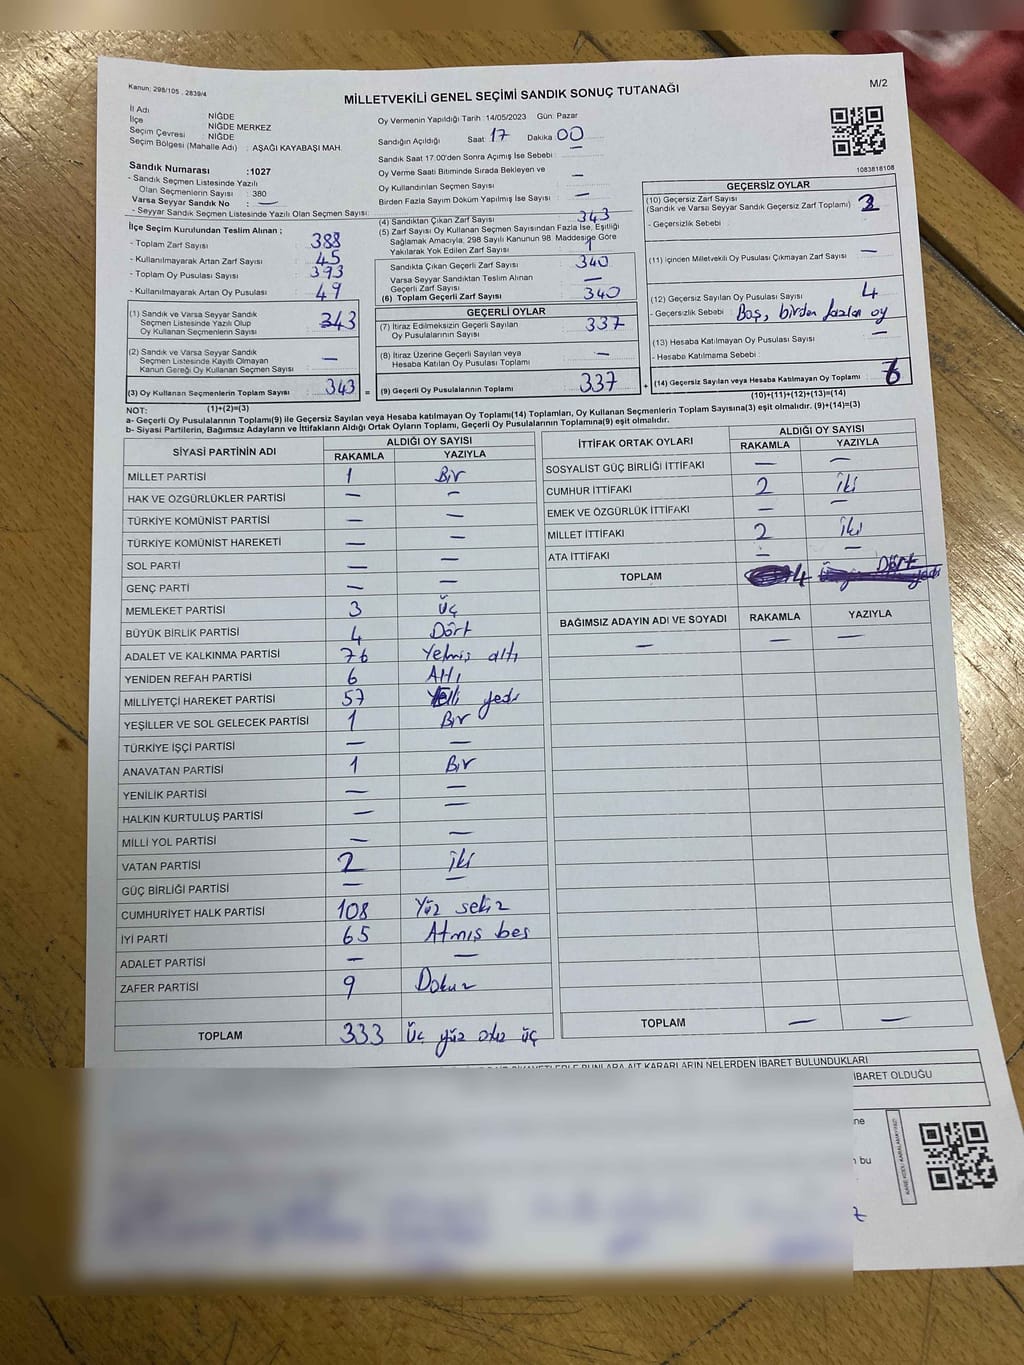 Kanun: 298/105 . 2839/4
MİLLETVEKİLİ GENEL SEÇİMİ SANDIK SONUÇ TUTANAĞI
M/2
İl Adı NİĞDE
İlçe NİĞDE MERKEZ
Seçim Çevresi : NİĞDE
Seçim Bölgesi (Mahalle Adı) : AŞAĞI KAYABAŞI MAH.
Sandık Numarası :1027
- Sandık Seçmen Listesinde Yazılı
Olan Seçmenlerin Sayısı : 380
Varsa Seyyar Sandık No : —
- Seyyar Sandık Seçmen Listesinde Yazılı Olan Seçmen Sayısı:
Oy Vermenin Yapıldığı Tarih :14/05/2023 Gün: Pazar
Sandığın Açıldığı Saat: 17 Dakika 00
Sandık Saat 17.00'den Sonra Açımış İse Sebebi : —
Oy Verme Saati Bitiminde Sırada Bekleyen ve
Oy Kullandırılan Seçmen Sayısı : —
Birden Fazla Sayım Döküm Yapılmış İse Sayısı : —
1083818108
İlçe Seçim Kurulundan Teslim Alınan ;
- Toplam Zarf Sayısı : 388
- Kullanılmayarak Artan Zarf Sayısı : 45
- Toplam Oy Pusulası Sayısı : 393
- Kullanılmayarak Artan Oy Pusulası : 49
(1) Sandık ve Varsa Seyyar Sandık
Seçmen Listesinde Yazılı Olup
Oy Kullanan Seçmenlerin Sayısı 343
(2) Sandık ve Varsa Seyyar Sandık
Seçmen Listesinde Kayıtlı Olmayan
Kanun Gereği Oy Kullanan Seçmen Sayısı —
(3) Oy Kullanan Seçmenlerin Toplam Sayısı 343 =
(4) Sandıktan Çıkan Zarf Sayısı : 343
(5) Zarf Sayısı Oy Kullanan Seçmen Sayısından Fazla İse, Eşitliği
Sağlamak Amacıyla, 298 Sayılı Kanunun 98. Maddesine Göre
Yakılarak Yok Edilen Zarf Sayısı :
Sandıkta Çıkan Geçerli Zarf Sayısı : 340
Varsa Seyyar Sandıktan Teslim Alınan
Geçerli Zarf Sayısı : —
(6) Toplam Geçerli Zarf Sayısı : 340
GEÇERLİ OYLAR
(7) İtiraz Edilmeksizin Geçerli Sayılan
Oy Pusulalarının Sayısı : 337
(8) İtiraz Üzerine Geçerli Sayılan veya
Hesaba Katılan Oy Pusulası Toplamı : —
(9) Geçerli Oy Pusulalarının Toplamı : 337 +
GEÇERSİZ OYLAR
(10) Geçersiz Zarf Sayısı
(Sandık ve Varsa Seyyar Sandık Geçersiz Zarf Toplamı) :
- Geçersizlik Sebebi :
(11) İçinden Milletvekili Oy Pusulası Çıkmayan Zarf Sayısı : —
(12) Geçersiz Sayılan Oy Pusulası Sayısı : 4
- Geçersizlik Sebebi : Boş, birden fazla oy
(13) Hesaba Katılmayan Oy Pusulası Sayısı : —
- Hesaba Katılmama Sebebi :
(14) Geçersiz Sayılan veya Hesaba Katılmayan Oy Toplamı : 6
NOT: (1)+(2)=(3)
(10)+(11)+(12)+(13)=(14)
a- Geçerli Oy Pusulalarının Toplamı(9) ile Geçersiz Sayılan veya Hesaba katılmayan Oy Toplamı(14) Toplamları, Oy Kullanan Seçmenlerin Toplam Sayısına(3) eşit olmalıdır. (9)+(14)=(3)
b- Siyasi Partilerin, Bağımsız Adayların ve İttifakların Aldığı Ortak Oyların Toplamı, Geçerli Oy Pusulalarının Toplamına(9) eşit olmalıdır.
SİYASİ PARTİNİN ADI ALDIĞI OY SAYISI
RAKAMLA YAZIYLA
MİLLET PARTİSİ 1 Bir
HAK VE ÖZGÜRLÜKLER PARTİSİ — —
TÜRKİYE KOMÜNİST PARTİSİ — —
TÜRKİYE KOMÜNİST HAREKETİ — —
SOL PARTİ — —
GENÇ PARTİ — —
MEMLEKET PARTİSİ 3 Üç
BÜYÜK BİRLİK PARTİSİ 4 Dört
ADALET VE KALKINMA PARTİSİ 76 Yetmiş altı
YENİDEN REFAH PARTİSİ 6 Altı
MİLLİYETÇİ HAREKET PARTİSİ 57 Elli yedi
YEŞİLLER VE SOL GELECEK PARTİSİ 1 Bir
TÜRKİYE İŞÇİ PARTİSİ — —
ANAVATAN PARTİSİ 1 Bir
YENİLİK PARTİSİ — —
HALKIN KURTULUŞ PARTİSİ — —
MİLLİ YOL PARTİSİ — —
VATAN PARTİSİ 2 İki
GÜÇ BİRLİĞİ PARTİSİ — —
CUMHURİYET HALK PARTİSİ 108 Yüz sekiz
İYİ PARTİ 65 Atmış beş
ADALET PARTİSİ — —
ZAFER PARTİSİ 9 Dokuz
TOPLAM 333 Üç yüz otuz üç
İTTİFAK ORTAK OYLARI ALDIĞI OY SAYISI
RAKAMLA YAZIYLA
SOSYALİST GÜÇ BİRLİĞİ İTTİFAKI — —
CUMHUR İTTİFAKI 2 İki
EMEK VE ÖZGÜRLÜK İTTİFAKI — —
MİLLET İTTİFAKI 2 İki
ATA İTTİFAKI — —
TOPLAM 4 Dört
BAĞIMSIZ ADAYIN ADI VE SOYADI RAKAMLA YAZIYLA
— — —
TOPLAM — —
KARARLARIN NELERDEN İBARET BULUNDUKLARI
İBARET OLDUĞU
ne
bu